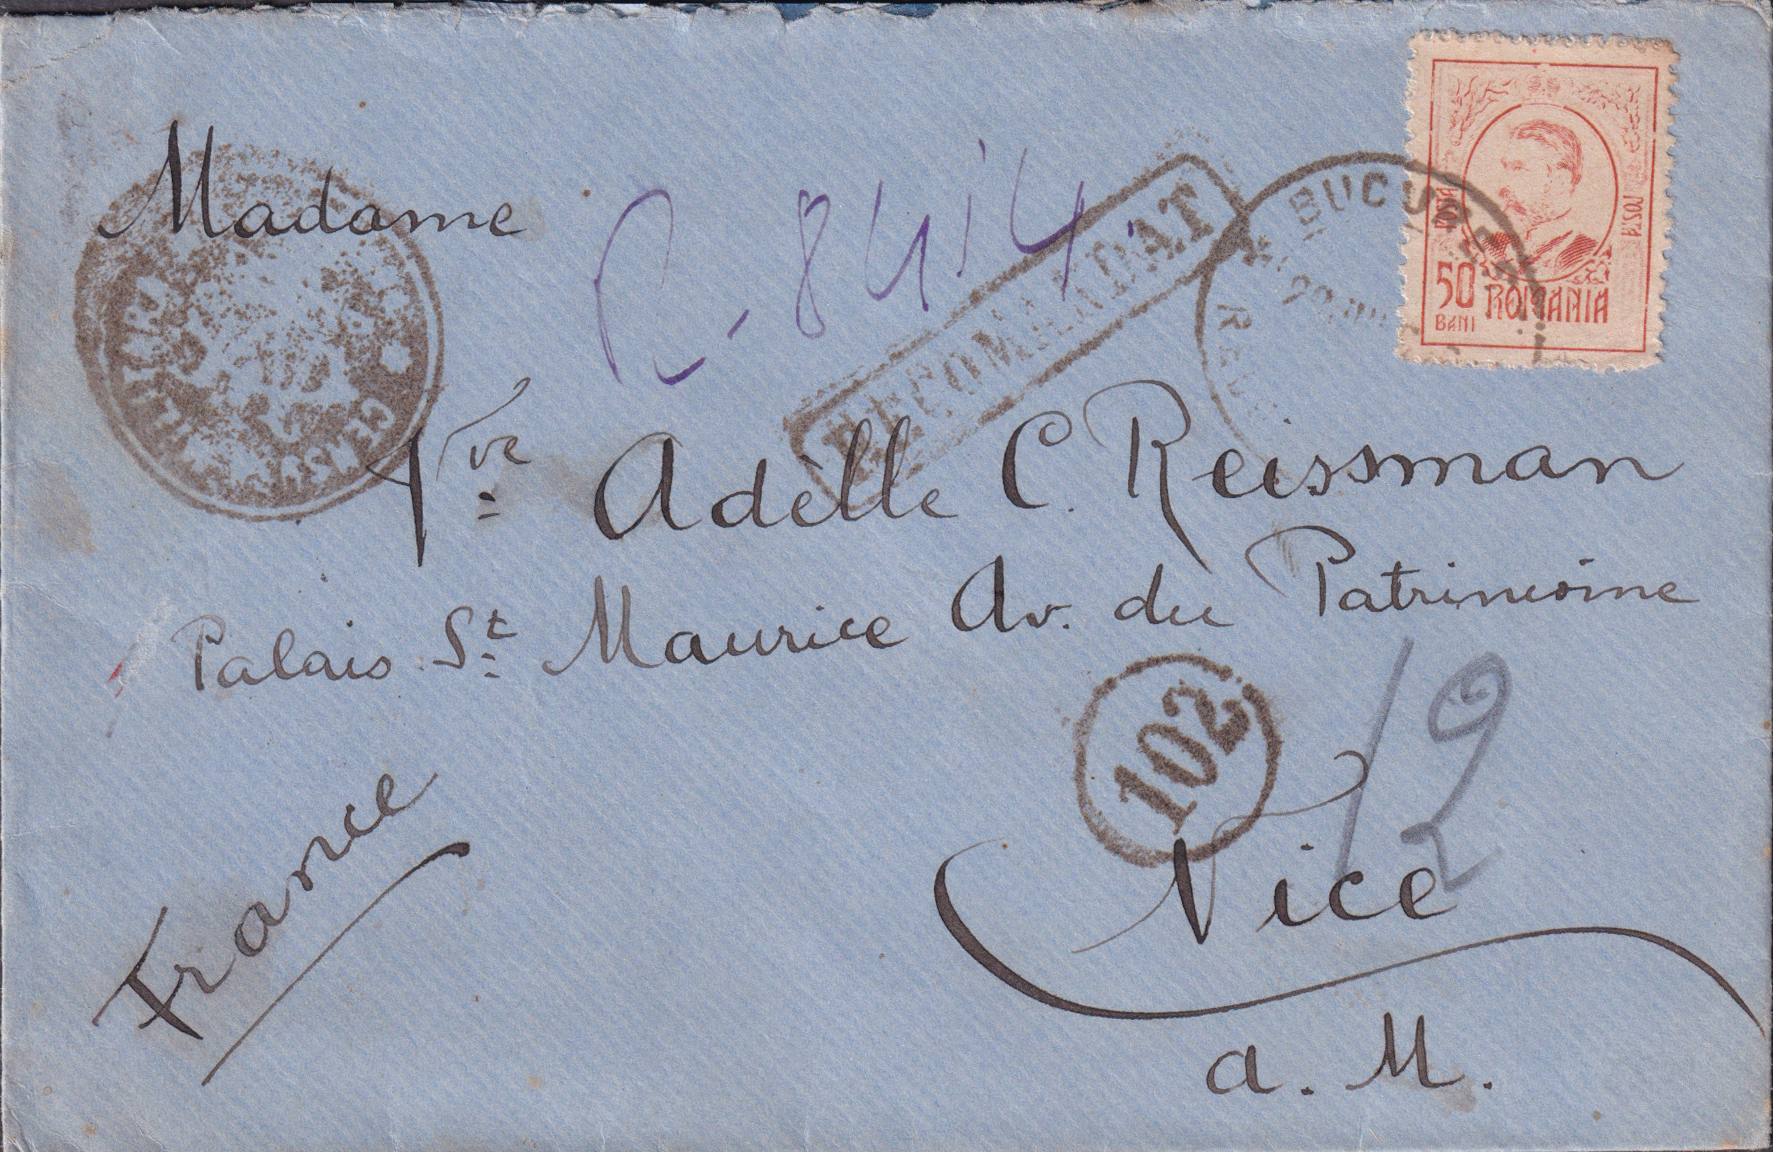 Madame
R-8414
RECOMANDAT
BUCUREȘTI
POSTA
POSTA
50
BANI
ROMANIA
Vve Adèlle C. Reissman
Palais St Maurice Av. du Patrimoine
102
12
France
Nice
a. M.